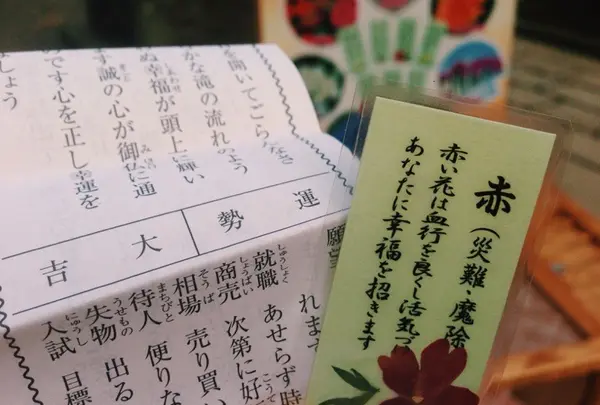 を開いてごらんなさ
かな滝の流れのよう
ぬ幸福が頭上に輝い
す誠の心が御仏に通
です心を正し幸運を
しょう
運勢
大吉
願望
れます
就職 あせらず時
商売 次第に好
相場 売り買い
待人 便りな
失物 出る
入試 目標
赤(災難・魔除
赤い花は血行を良くし活気づ
あなたに幸福を招きます